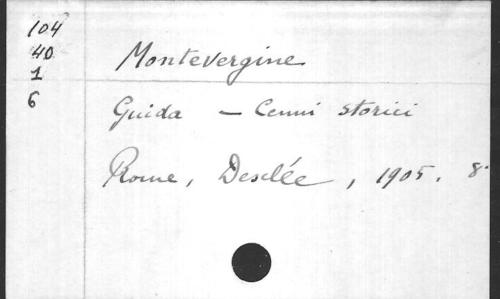 104
40
1
6
Montevergine
Guida — Cenni storici
Rome, Desclée, 1905. 8°